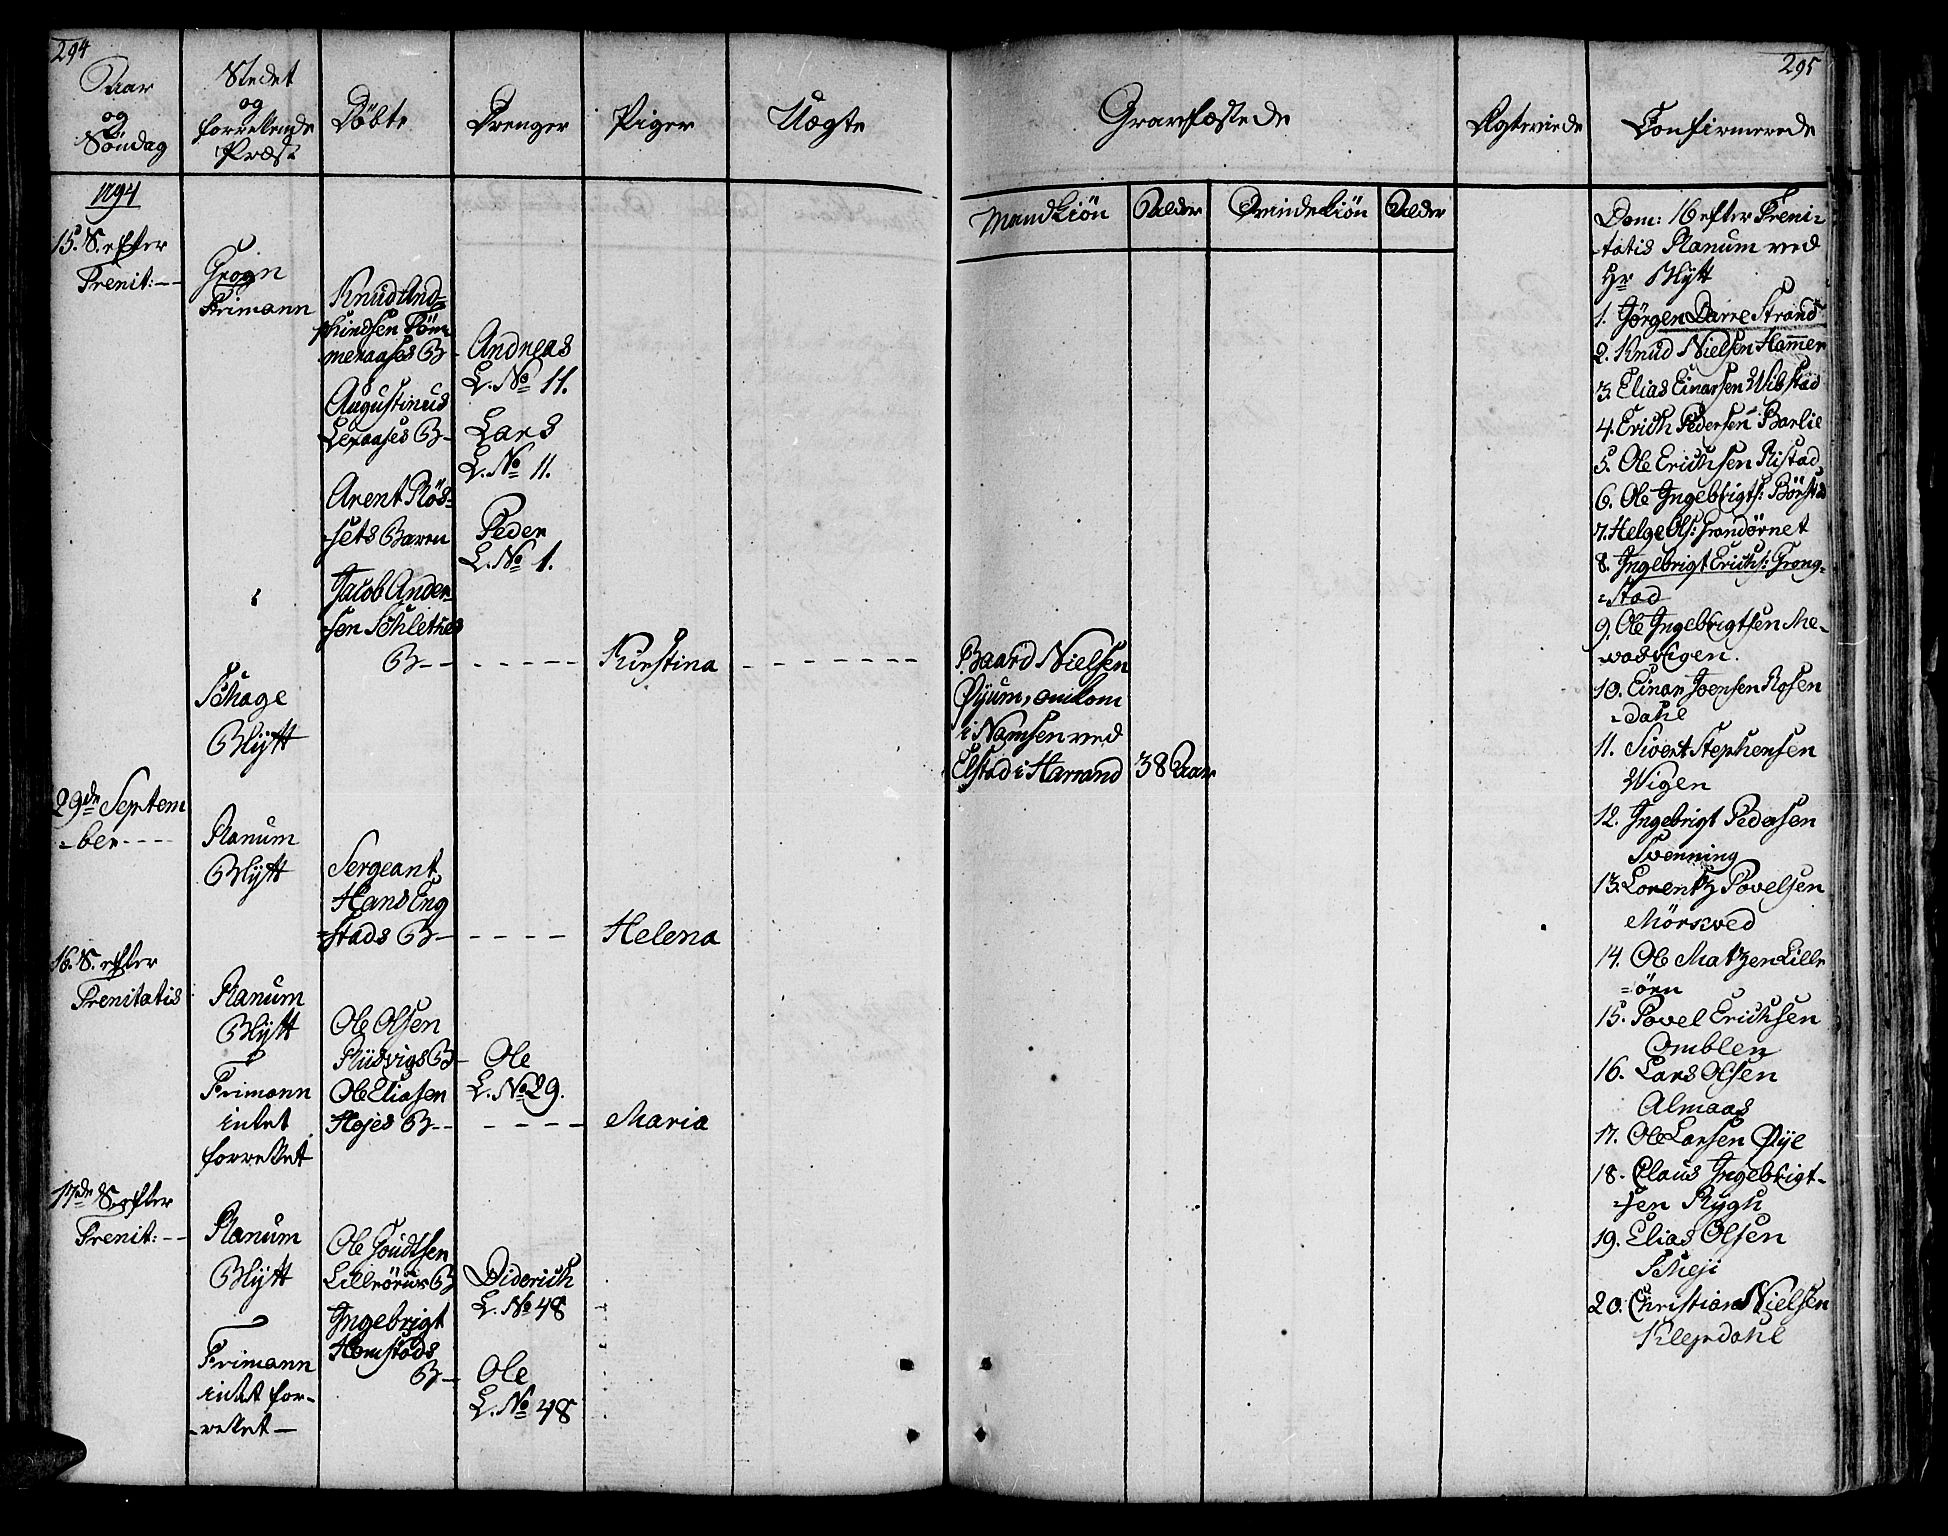 294
Aar
og
Søndag
Stedet
og
forrettende
Præst
Døbte
Drenger
Piger
Uægte
1794
15. S. efter
Trenit:--
Grogn
Frimann
Knud And-
meraases B-
Andreas
L. No 11.
Augustinus
B-
Lars
L. No 11.
Arent Røs-
sets Barn
Peder
L. No 1.
Jacob Ander-
sen Schletnes
B------
Kirstina
Schage
Blÿtt
29de Septem
-ber----
Ranum
Blÿtt
Sergeant
Hans Eng
=stads B-----
Helena
16. S. efter
Trenitatis
Ranum
Blÿtt
Ole Olsen
Rüdvigs B-
Ole
L. No 29.
Frimann
intet
forrettet
Ole Eliasen
Hojes B------
Maria
17de S. efter
Trenit:--
Ranum
Blÿtt
Ole
Lilleørens B
Diderich
L. No 48
Frimann
intet for-
-rettet-
Ingebrigt
Homstads
B-
Ole
L. No 48
295
Gravfæstede
Ægteviede
Confirmerede
Mandkiön
Alder
Qvindekiön
Alder
Baard Nielsen
Øÿum, omkom
i Namsen ved
Elstad i Harrand
38 Aar
Dom: 16 efter Treni-
-tatis Ranum ved
Hr Blÿtt
1. Jørgen Darre Strand
2. Knud Nielsen Hammer
3. Elias Einarsen Wibstad
4. Erich Pedersen Barlie
5. Ole Erichsen Ristad
6. Ole Ingebrigts: Børstad
7. Helge Ols: Grandørnet
8. Ingebrigt Erichs: Grong-
=stad
9. Ole Ingebrigtsen Me-
-vasvigen.
10. Einar Joensen Rosen
=dahl
11. Sivert Stephensen
Wigen
12. Ingebrigt Pedersen
Svenning
13. Lorentz Povelsen
Mörkved
14. Ole Matzen Lille
=ørn
15. Povel Erichsen
Omblen
16. Lars Olsen
Almaas
17. Ole Larsen Øÿe
18. Claus Ingebrigt-
-sen Rygh
19. Elias Olsen
20. Christian Nielsen
Klepdahl